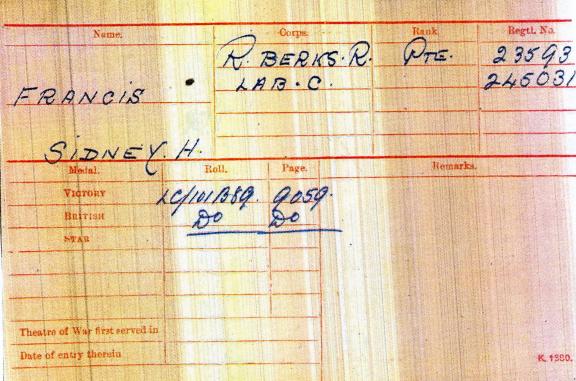 Name. Corps. Rank. Regtl. No.
R. BERKS. R. PTE. 23593
LAB. C. 245031
FRANCIS
SIDNEY. H.
Medal. Roll. Page. Remarks.
VICTORY LC/101B89. 9059.
BRITISH DO DO
STAR
Theatre of War first served in
Date of entry therein
K. 1380.